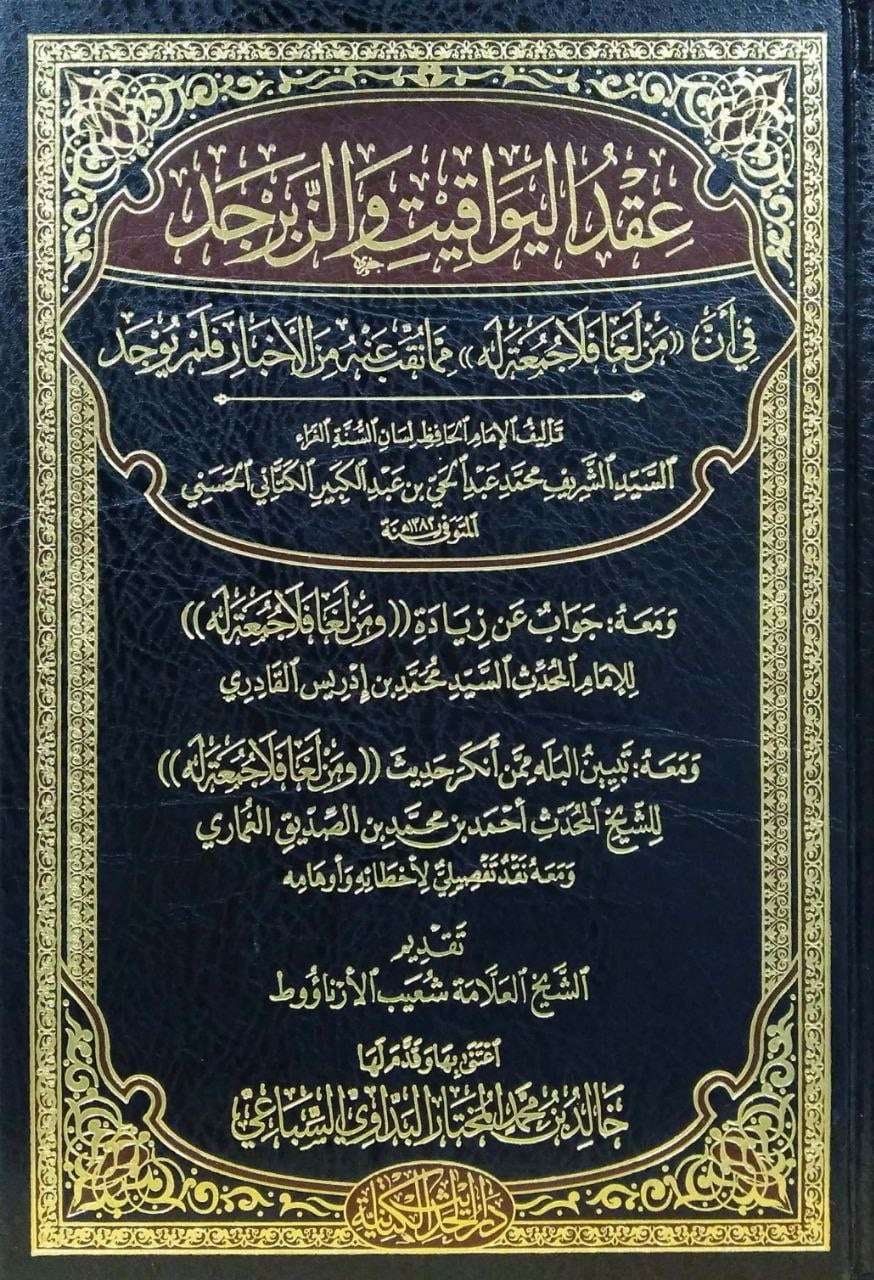 عِقْدُ اليَوَاقِيتِ وَالزَّبَرْجَد
فِي أَنَّ «مَنْ لَغَا فَلَا جُمُعَةَ لَه» مِمَّا نُقِّبَ عَنْهُ مِنَ الْأَخْبَارِ فَلَمْ يُوْجَد
تَأليفُ الإمَامِ الحَافِظِ لِسَانِ السُّنَّةِ الغَرَّاء
السَّيِّدِ الشَّرِيفِ محمّد عَبْدِ الحَيّ بن عَبْدِ الكَبِيرِ الكَتَّانِيّ الحَسَنِي
المتَوَفَّى سَنَة ١٣٨٢هـ
وَمَعَهُ: جَوَابٌ عَن زِيَادَةِ ((ومَنْ لَغَا فَلَا جُمُعَةَ لَه))
لِلإِمَامِ المُحَدِّثِ السَّيِّدِ مُحَمَّدِ بن إِدْرِيسَ القَادِرِي
وَمَعَهُ: تَبْيِينُ البَلَه مِمَّن أَنكَرَ حَدِيثَ ((ومَنْ لَغَا فَلَا جُمُعَةَ لَه))
لِلشَّيخِ المُحَدِّثِ أَحْمَد بن محمَّد بن الصِّدِّيق الغُمَارِي
وَمَعَهُ نَقْدٌ تَفْصِيلِيٌّ لِأَخْطَائِهِ وَأَوهَامِه
تَقْدِيم
الشَّيْخ العَلَّامَة شُعَيب الأَرْنَاؤُوط
اعْتَنَى بِهَا وَقَدَّمَ لَهَا
خَالِدُ بْنُ مُحَمَّد المُخْتَار البَدَّاوِيّ السِّبَاعِيّ
دار الحديث الكتانية